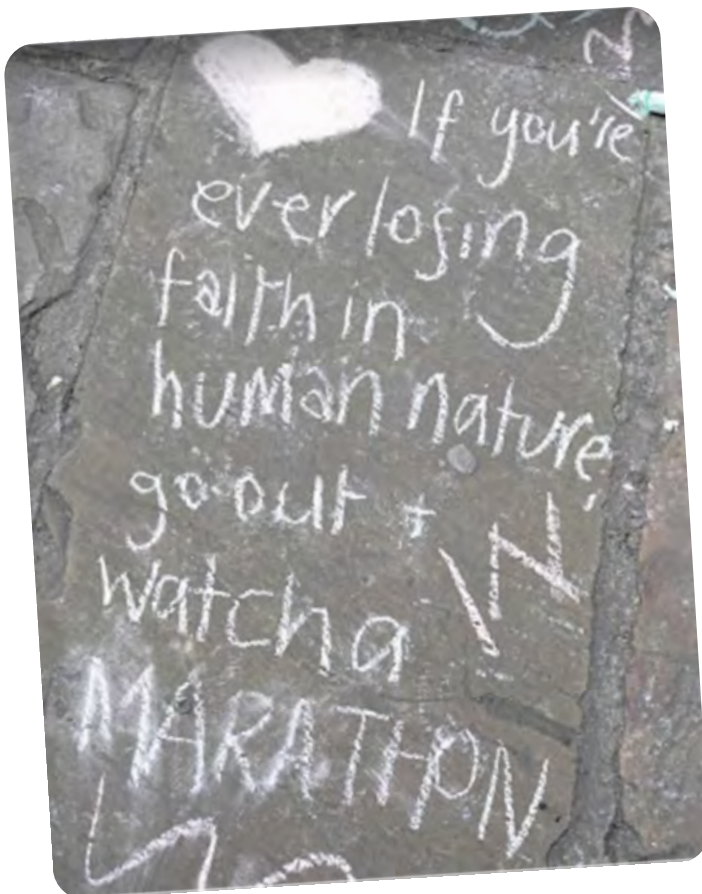 If you're
ever losing
faith in
human nature,
go out +
watch a
MARATHON